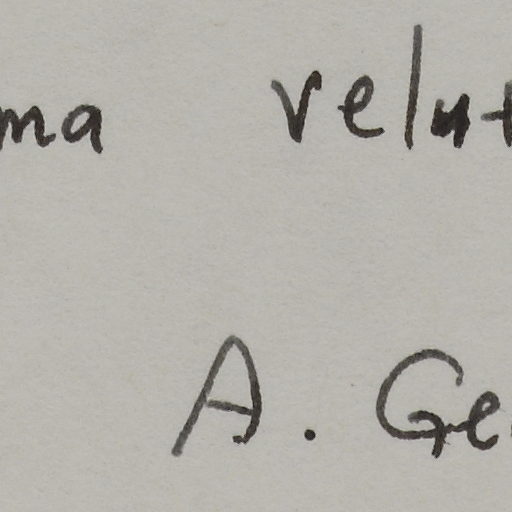 ma velut
A. Ge